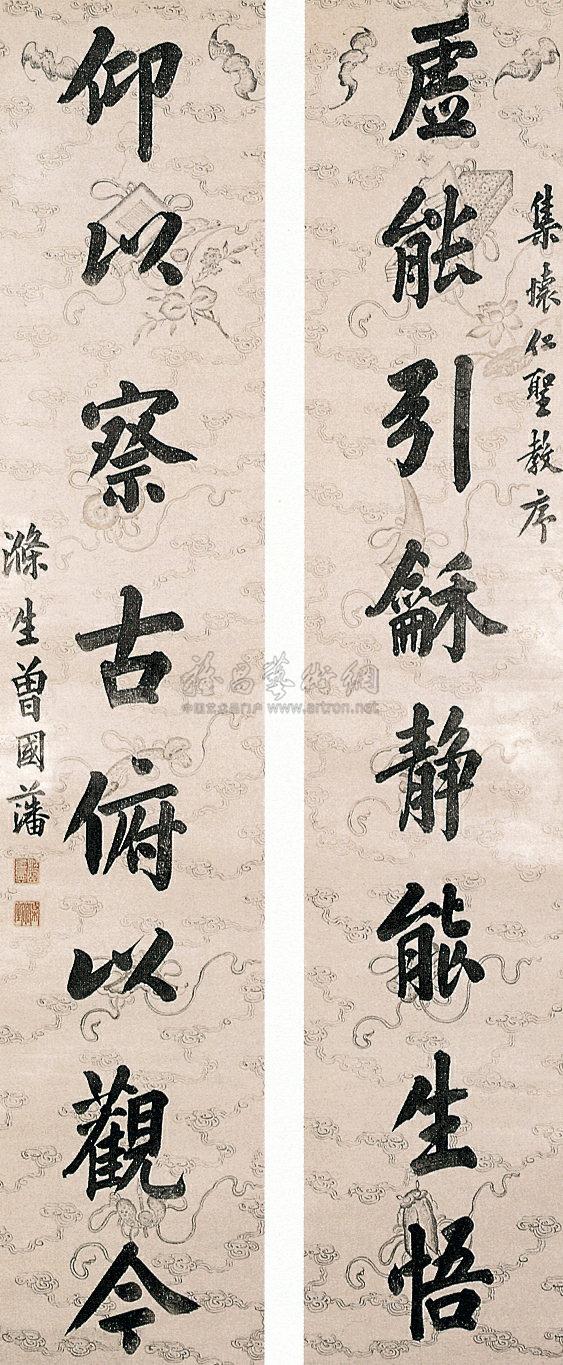 集懷仁聖教序
虛能引龢静能生悟
仰以察古俯以觀今
滌生曾國藩
雅昌藝術網
中国艺术品门户 www.artron.net